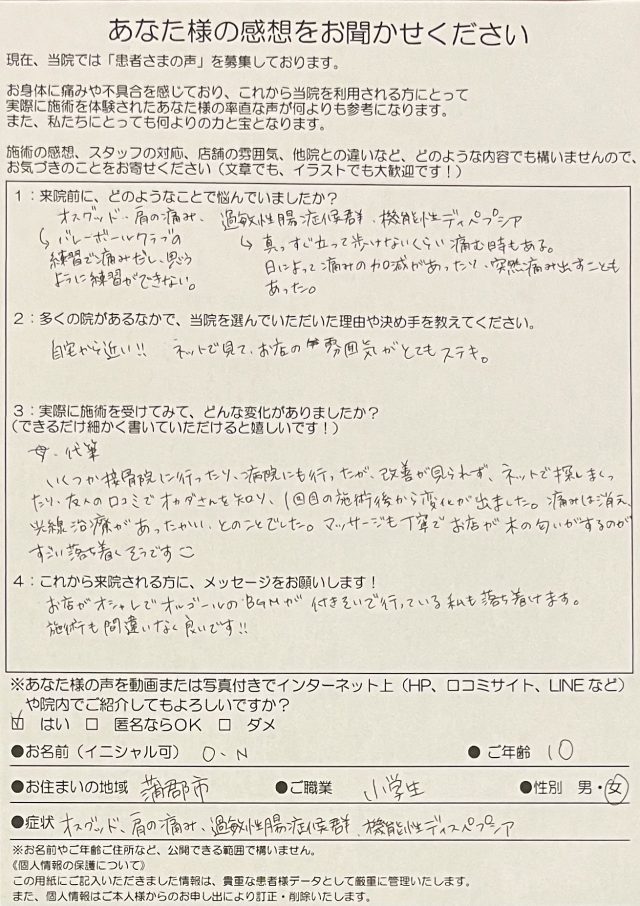 あなた様の感想をお聞かせください
現在、当院では「患者さまの声」を募集しております。
お身体に痛みや不具合を感じており、これから当院を利用される方にとって
実際に施術を体験されたあなた様の率直な声が何よりも参考になります。
また、私たちにとっても何よりの力と宝となります。
施術の感想、スタッフの対応、店舗の雰囲気、他院との違いなど、どのような内容でも構いませんので、
お気づきのことをお寄せください（文章でも、イラストでも大歓迎です！）
1：来院前に、どのようなことで悩んでいましたか？
オスグッド、肩の痛み、過敏性腸症候群、機能性ディペプシア
↳ バレーボールクラブの
練習で痛みだし、思う
ように練習ができない。
↳ 真っすぐ立って歩けないくらい痛む時もある。
日によって痛みの加減があったり、突然痛み出すことも
あった。
2：多くの院があるなかで、当院を選んでいただいた理由や決め手を教えてください。
自宅から近い!! ネットで見て、お店の雰囲気がとてもステキ。
3：実際に施術を受けてみて、どんな変化がありましたか？
（できるだけ細かく書いていただけると嬉しいです！）
母、代筆
いくつか接骨院に行ったり、病院にも行ったが、改善が見られず、ネットで探しまくっ
たり、友人の口コミでオカダさんを知り、1回目の施術後から変化が出ました。痛みは消え、
光線治療があったかい、とのことでした。マッサージも丁寧でお店が木の匂いがするのが
すごい落ち着くそうです
4：これから来院される方に、メッセージをお願いします！
お店がオシャレでオルゴールのBGMが付きそいで行っている私も落ち着けます。
施術も間違いなく良いです!!
※あなた様の声を動画または写真付きでインターネット上（HP、口コミサイト、LINEなど）
や院内でご紹介してもよろしいですか？
☑ はい □ 匿名ならOK □ ダメ
●お名前（イニシャル可） O・N ●ご年齢 10
●お住まいの地域 蒲郡市 ●ご職業 小学生 ●性別 男・女
●症状 オスグッド、肩の痛み、過敏性腸症候群、機能性ディスペプシア
※お名前やご年齢ご住所など、公開できる範囲で構いません。
《個人情報の保護について》
この用紙にご記入いただきました情報は、貴重な患者様データとして厳重に管理いたします。
また、個人情報はご本人様からのお申し出により訂正・削除いたします。